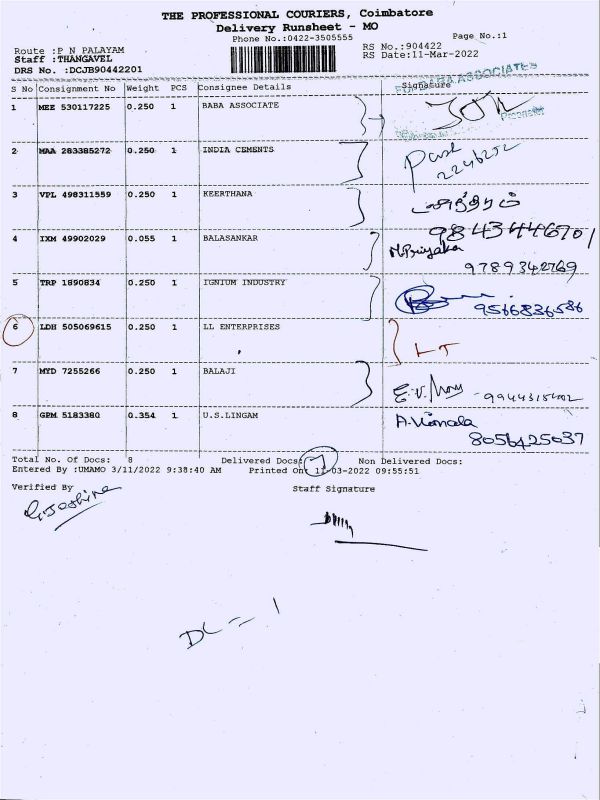 THE PROFESSIONAL COURIERS, Coimbatore
Delivery Runsheet - MO
Phone No.:0422-3505555
Page No.:1
Route :P N PALAYAM
RS No.:904422
Staff :THANGAVEL
RS Date:11-Mar-2022
DRS No. :DCJB90442201
FOR BABA ASSOCIATES
S No Consignment No Weight PCS Consignee Details Signature
1 MEE 530117225 0.250 1 BABA ASSOCIATE
2 MAA 283385272 0.250 1 INDIA CEMENTS
2246252
3 VPL 498311559 0.250 1 KEERTHANA
9843446701
4 IXM 49902029 0.055 1 BALASANKAR M.Priyanka
9789342769
5 TRP 1890834 0.250 1 IGNIUM INDUSTRY
9566836586
6 LDH 505069615 0.250 1 LL ENTERPRISES
LT
7 MYD 7255266 0.250 1 BALAJI
8 GPM 5183380 0.354 1 U.S.LINGAM A.Vimala
8056425037
Total No. Of Docs: 8 Delivered Docs: 7 Non Delivered Docs:
Entered By :UMAMO 3/11/2022 9:38:40 AM Printed On: 11-03-2022 09:55:51
Verified By Staff Signature
DC = 1